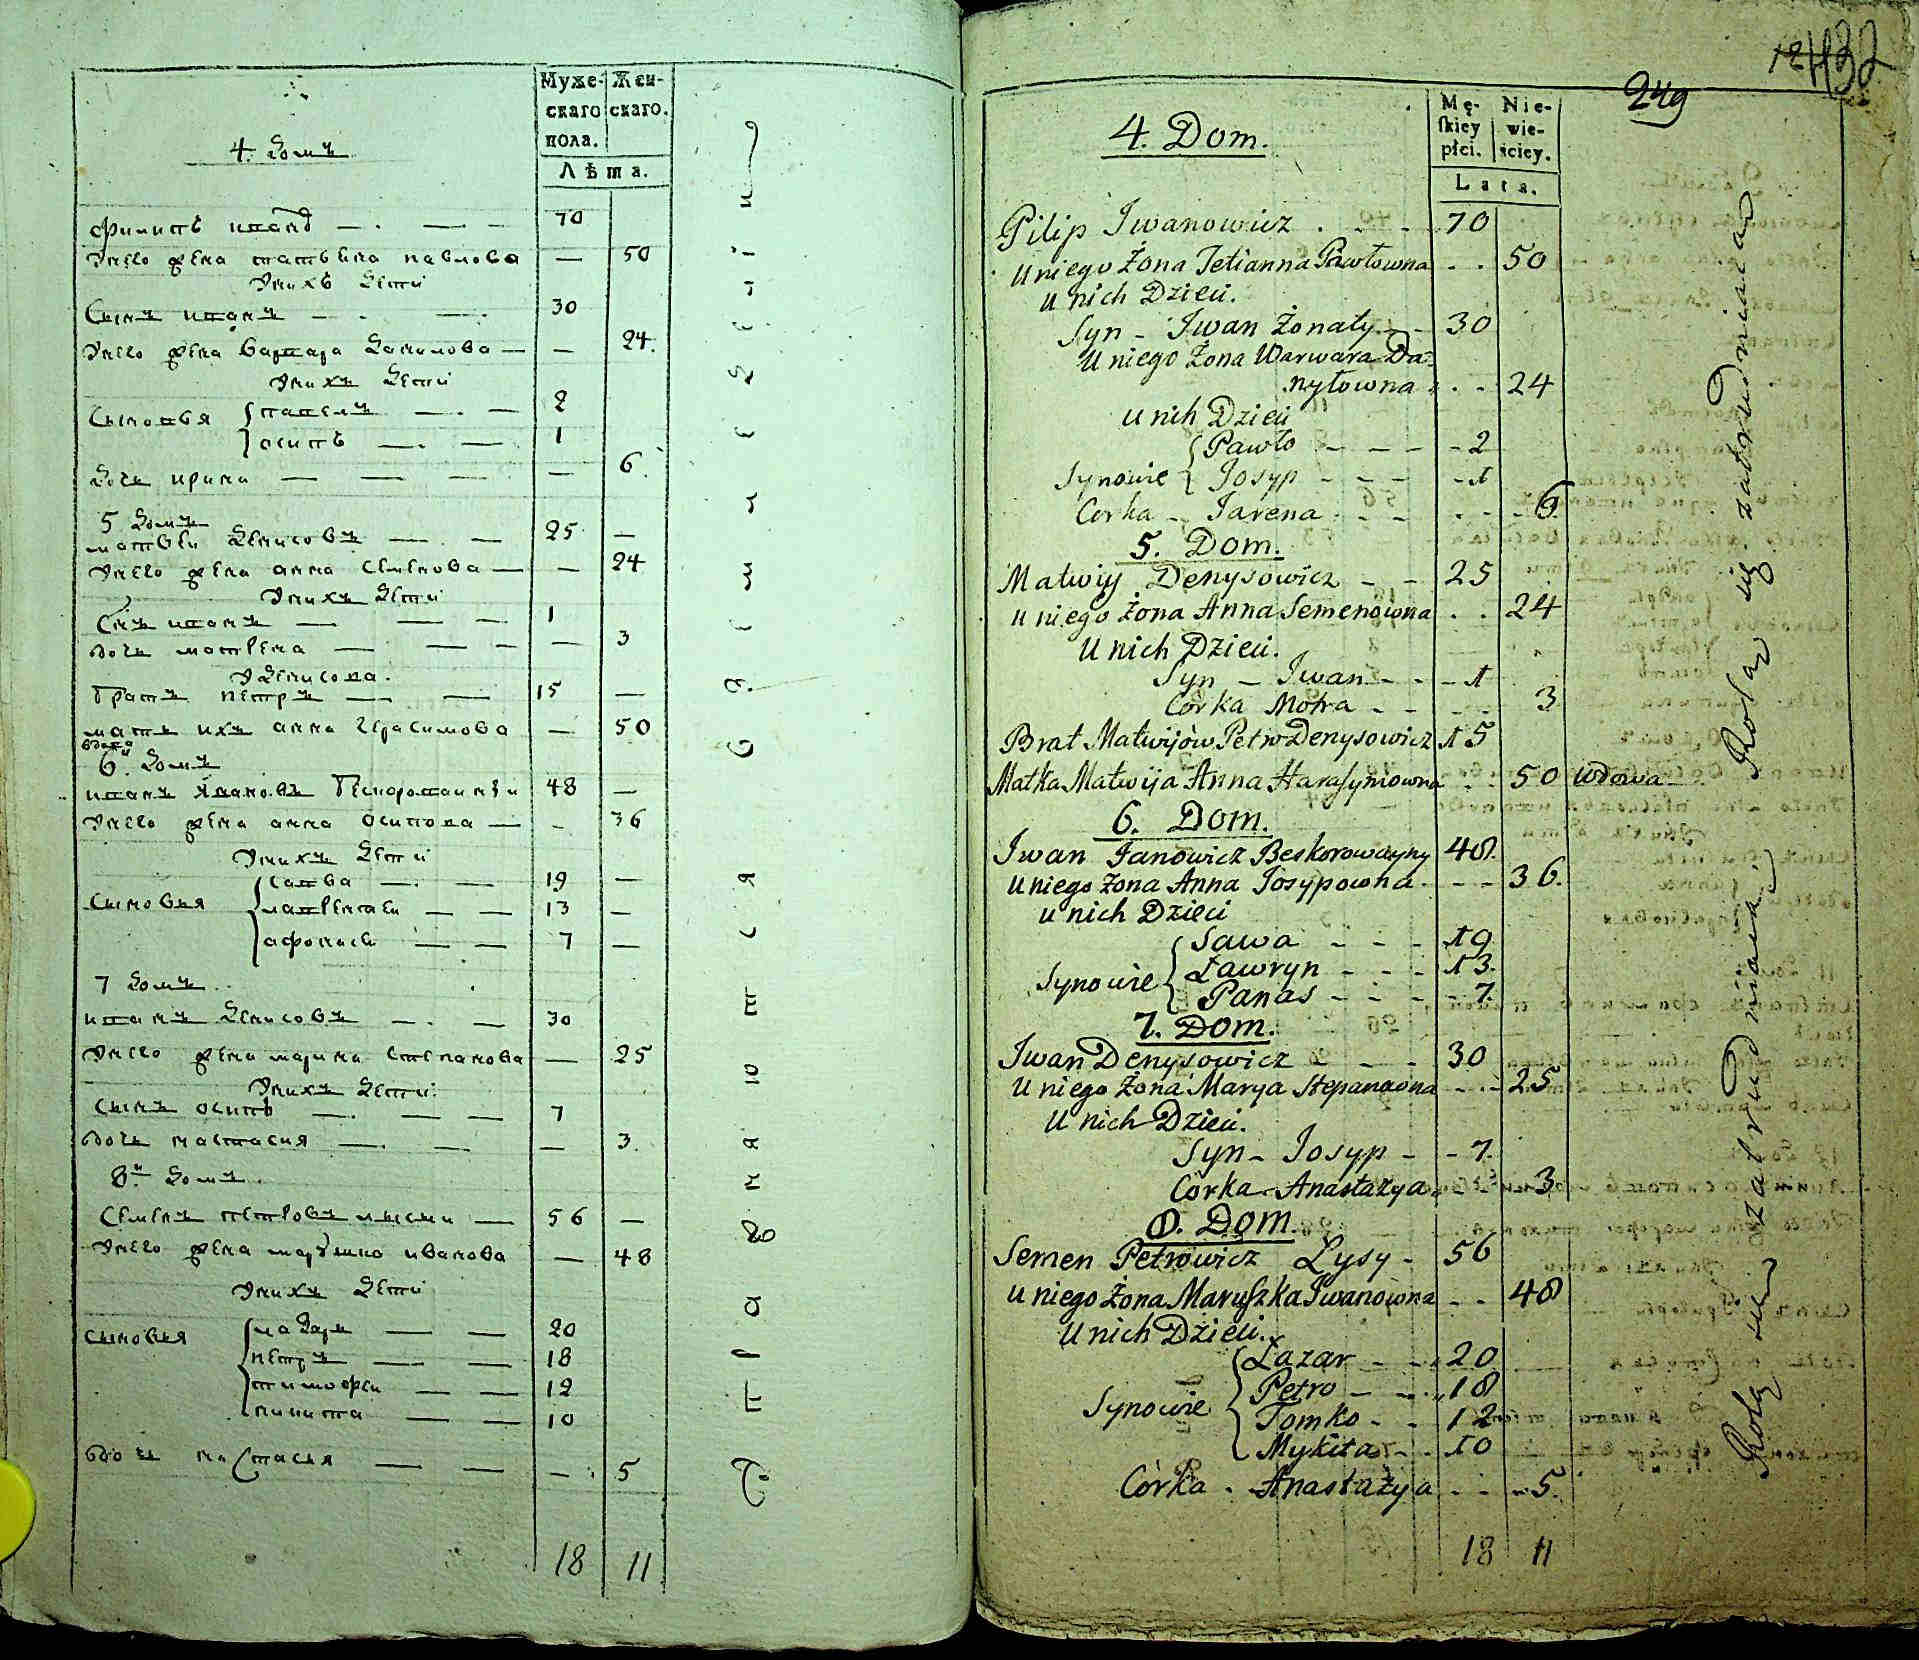 Муже-
скаго
пола.
Жен-
скаго.
Лѣта.
4. Домъ
Филипъ Иванов — . — — 70
У него жена Татьяна Павлова — 50
У нихъ дети
Сынъ Иванъ — . — . 30
У него жена Варвара Данилова — — 24.
У нихъ дети
Сыновья { Павелъ — . — 2
Осипъ — . — 1
Дочь Ирина — — — — 6.
5 Домъ
Матвей Денисовъ — . — 25 —
У него жена Анна Семенова — — 24
У нихъ дети
Снъ Иванъ — — — 1
Дочь Матрена — — — — 3
У Денисова.
Братъ Петръ — — 15 —
Мать ихъ Анна Герасимова — 50
вдова
6. Домъ
Иванъ Яковъ Безкоровайный 48 —
У него жена Анна Осипова — - 36
У нихъ дети
Сыновья { Савва — . — 19 —
Лаврентей — — 13 —
Афонасей — — 7 —
7 Домъ
Иванъ Денисовъ — . — 30
У него жена Марина Степанова — 25
У нихъ дети
Сынъ Осипъ — . — — 7
Дочь Настасия — . — — 3.
8й Домъ.
Семенъ Петровъ Лысый — 56 —
У него жена Марушка Иванова — 48
У нихъ дети
Сыновья { Лазарь — — 20
Петръ — — 18
Тимофей — — 12
Никита — — 10
Дочь Настасья — — — . 5
18 11
12
432
249
Mę-
skiey
płci.
Nie-
wie-
ściey.
Lata.
4. Dom.
Pilip Iwanowicz . - - 70
U niego Żona Tetianna Pawłowna - . 50
U nich Dzieci.
Syn - Iwan Żonaty - - 30
U niego Żona Warwara Da-
nyłowna . - 24
U nich Dzieci
{ Pawło - - - - 2
Synowie { Josyp - - - - 1
Corka - Jarena - - - - - 6.
5. Dom.
Matwiy Denysowicz - - 25
U niego Żona Anna Semenowna . . 24
U nich Dzieci.
Syn - Iwan - - - 1
Córka Motra - - - - 3
Brat Matwijów Petro Denysowicz 15
Matka Matwija Anna Harasymowna . . 50 wdowa
6. Dom.
Iwan Janowicz Beskorowayny 48.
U niego Żona Anna Josypowna - - - 36.
U nich Dzieci
{ Sawa - - - 19
Synowie { Ławryn - - - 13.
Panas - - - - 7.
7. Dom.
Iwan Denysowicz - - - 30
U niego Żona Marya Stepanowna - - - 25
U nich Dzieci.
Syn - Josyp - - 7.
Córka - Anastazya - - - 3
8. Dom.
Semen Petrowicz Łysy - 56
U niego Żona Maruszka Iwanowna - - 48
U nich Dzieci.
{ Łazar - - - 20
Petro - - - 18
Synowie { Tomko - - 12
Mykita - - 10
Córka . Anastazya - - - 5.
18 11
Rolą się zatrudniaią
Rolą się zatrudniaią.